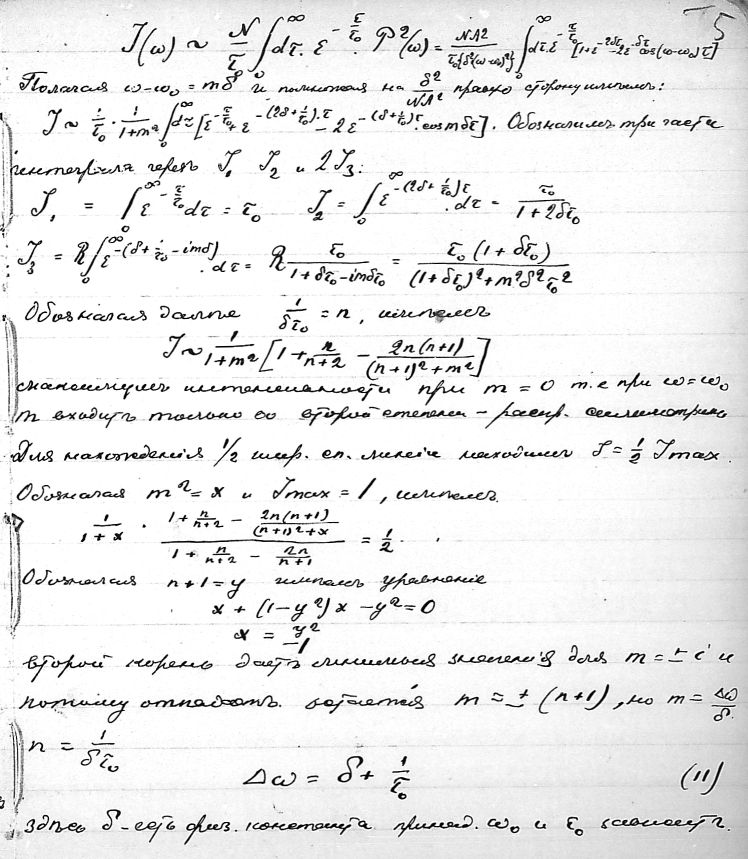 5
J(ω) ~ N/τ₀ ∫₀^∞ dτ. ε^{-τ/τ₀}. P²(ω) = NA²/τ₀{δ²+(ω-ω₀)²} ∫₀^∞ dτ. ε^{-τ/τ₀}[1+ε^{-2δτ}-2ε^{-δτ}cos(ω-ω₀)τ]
Полагая ω-ω₀ = mδ и помножая на δ²/NA² правую сторону имѣемъ:
J ~ 1/τ₀ · 1/(1+m²) ∫₀^∞ dτ [ε^{-τ/τ₀} + ε^{-(2δ+1/τ₀)·τ} - 2ε^{-(δ+1/τ₀)τ}·cos mδτ]. Обозначимъ три части
интеграла черезъ J₁ J₂ и 2J₃:
J₁ = ∫₀^∞ ε^{-τ/τ₀} dτ = τ₀ J₂ = ∫₀^∞ ε^{-(2δ+1/τ₀)τ}.dτ = τ₀/(1+2δτ₀)
J₃ = R∫₀^∞ ε^{-(δ+1/τ₀-imδ)}.dτ = R τ₀/(1+δτ₀-imδτ₀) = τ₀(1+δτ₀)/((1+δτ₀)²+m²δ²τ₀²)
Обозначая далѣе 1/δτ₀ = n, имѣемъ
J ~ 1/(1+m²) [1 + n/(n+2) - 2n(n+1)/((n+1)²+m²)]
интенсивности при m = 0 т.е при ω=ω₀
m входитъ только во второй степени - распр. симметрично
Для нахожденія 1/2 шир. сп. линіи находимъ J = 1/2 Jmax.
Обозначая m² = x и Jmax = 1, имѣемъ.
1/(1+x) · (1 + n/(n+2) - 2n(n+1)/((n+1)²+x)) / (1 + n/(n+2) - 2n/(n+1)) = 1/2.
Обозначая n+1 = y имѣемъ уравненіе
x + (1-y²)x - y² = 0
x = y²
-1
второй корень даетъ мнимыя значенія для m = ± i и
потому отпадаетъ. остается m = ± (n+1), но m = Δω/δ.
n = 1/δτ₀
Δω = δ + 1/τ₀ (11)
здѣсь δ - есть физ. константа ω₀ и τ₀ зависитъ.